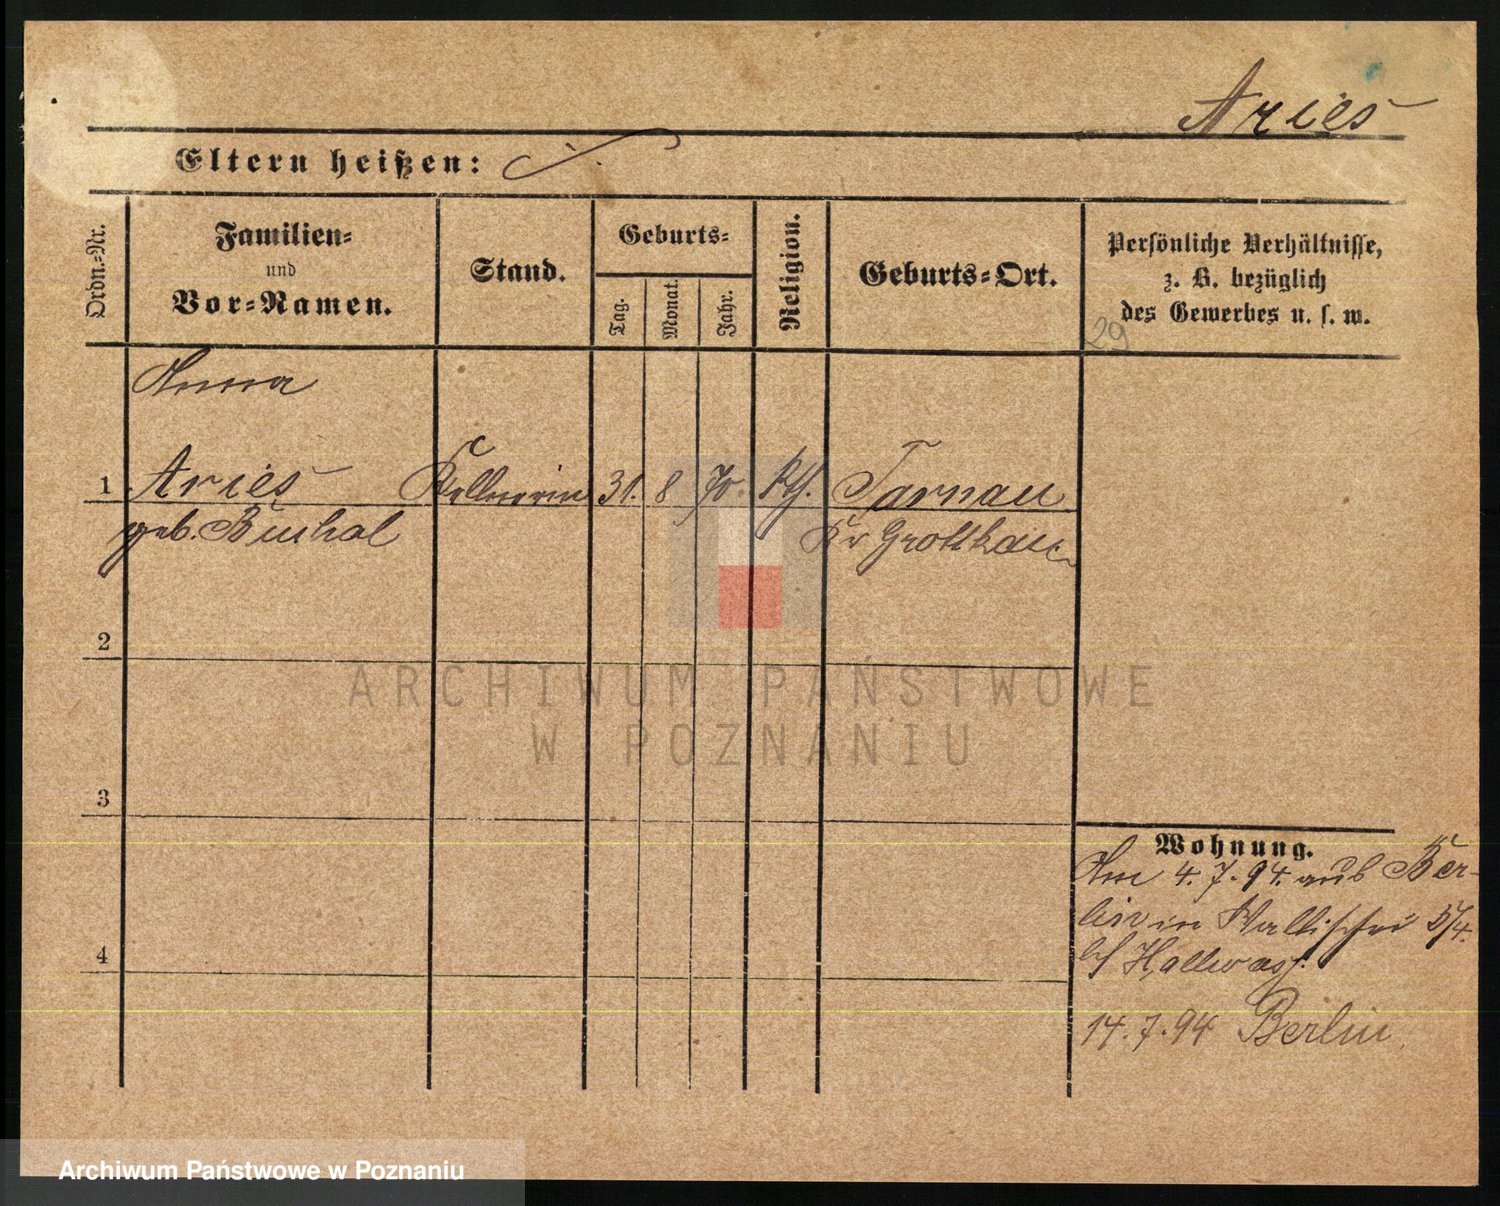 Aries
Eltern heißen:
Ordn.-Nr.
Familien-
und
Vor-Namen.
Stand.
Geburts-
Tag.
Monat.
Jahr.
Religion.
Geburts-Ort.
Persönliche Verhältnisse,
z. B. bezüglich
des Gewerbes u. s. w.
29
Anna
1 Aries Kellnerin 31. 8 70. Kth. Tarnau
geb. Buchal Kr Grottkau
2
ARCHIWUM PAŃSTWOWE
W POZNANIU
3
Wohnung.
Am 4. 7. 94. aus Ber-
lin in Wallischei 5/4.
4
bei Hallwass.
14. 7. 94 Berlin
Archiwum Państwowe w Poznaniu